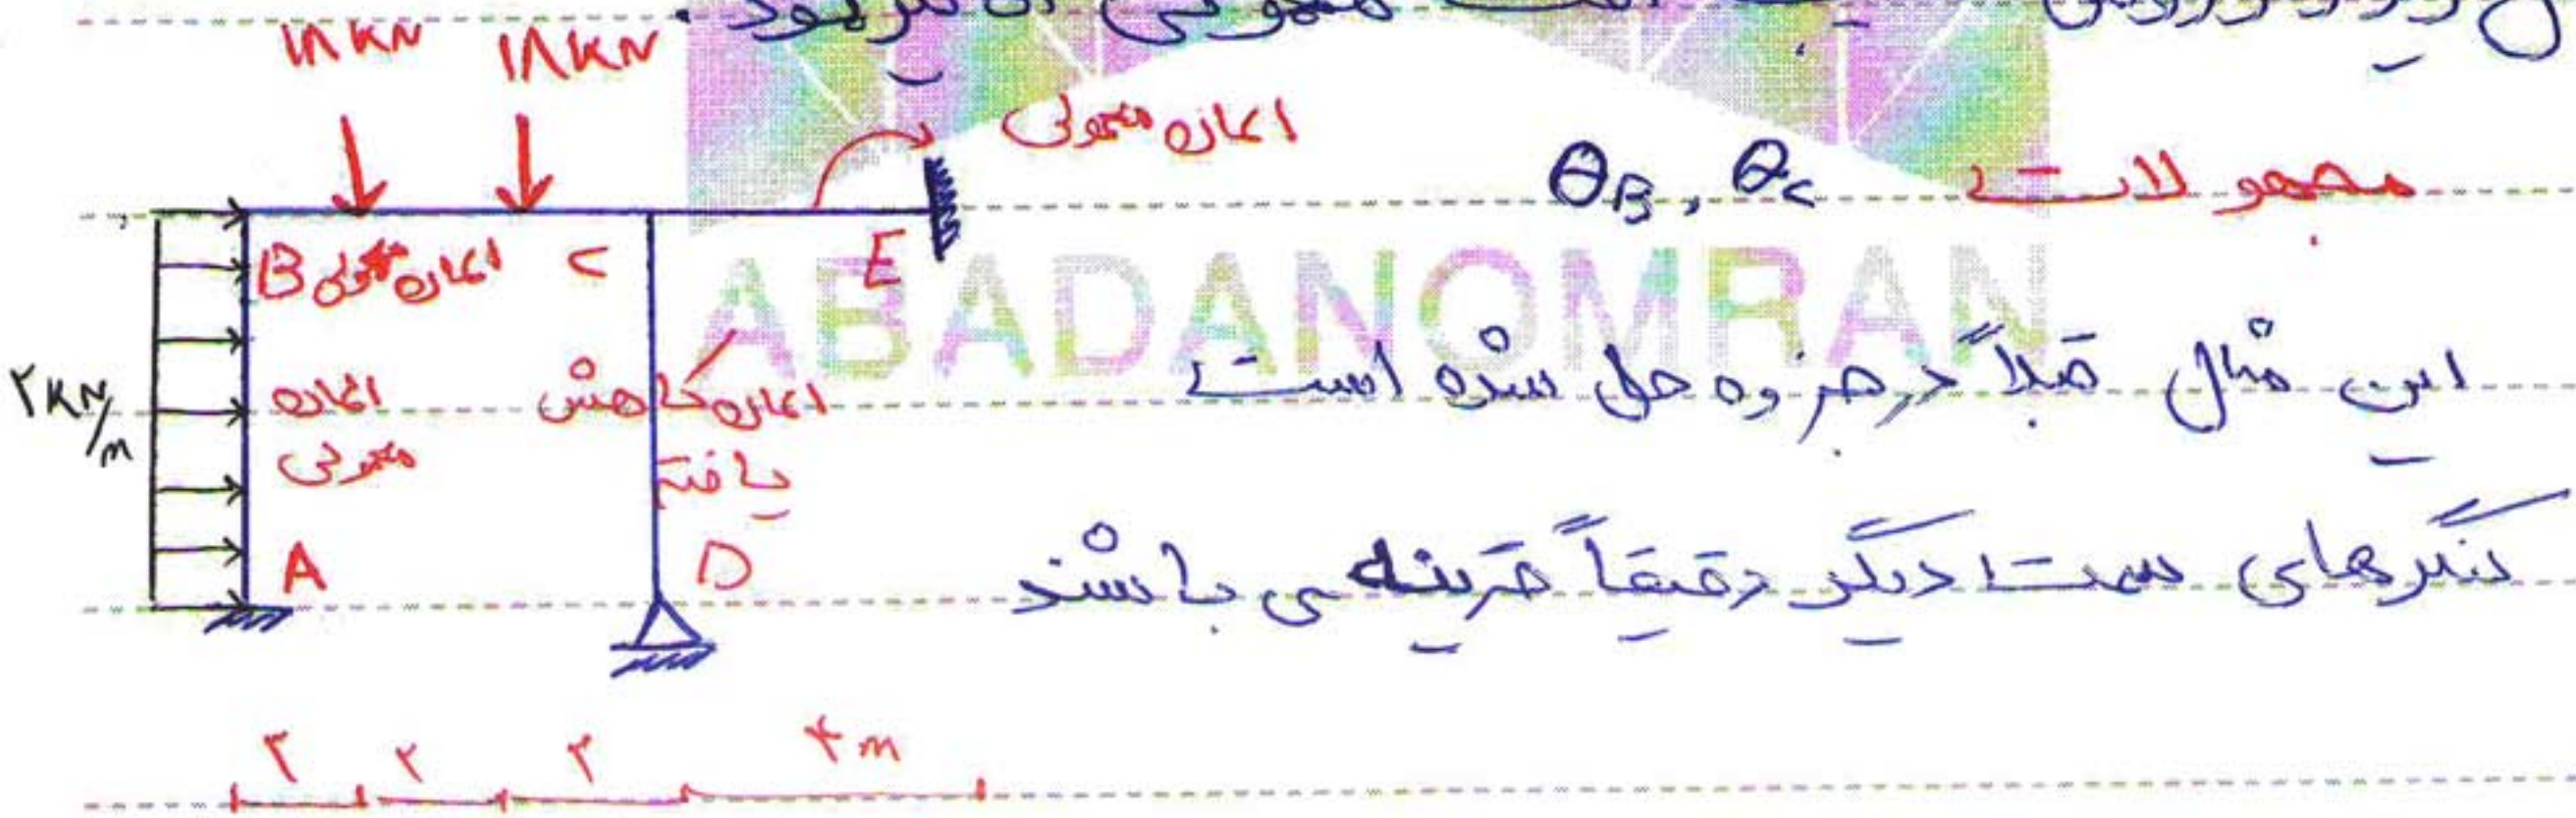 ۱۸ KN ۱۸ KN
اندازه معمولی
مجهولات θB , θC
B اندازه معمولی C E
ABADANOMRAN
۲ KN/m
اندازه معمولی
اندازه کاهش یافته
این مثال قبلاً در جزوه حل شده است
A D
لنگرهای سمت دیگر دقیقاً قرینه می باشند
۲ ۲ ۲ ۴ m